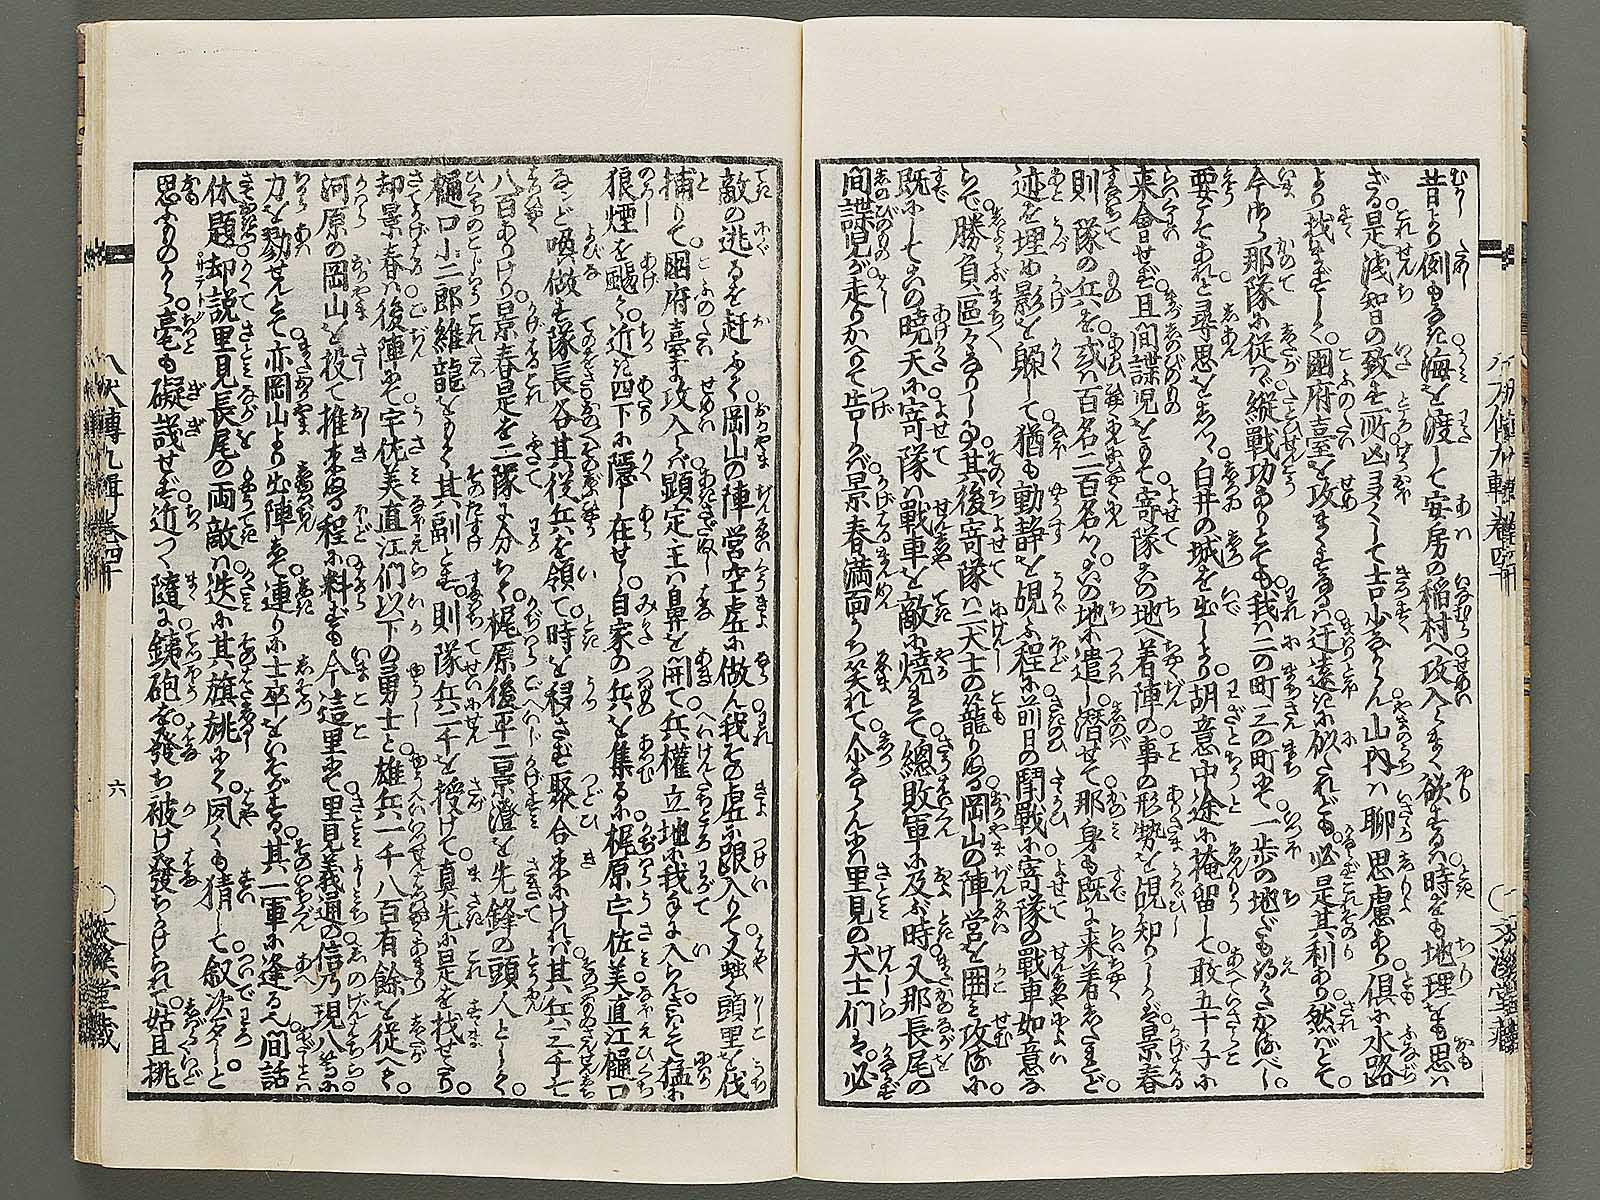 昔より例もなき海を渡して安房の稲村へ攻入まく欲するハ時をも地理をも思ハ
ざる是淺智の致す所凶多くして吉少なからん山内ハ聊思慮あり倶に水路
より找まずして國府臺を攻まくするハ迂遠に似たれども必是其利あり然ばとて
今より那隊に従ハヾ縦戦功ありとても我ハ二の町三の町にて一歩の地だも得がたかるべし
要こそあれと尋思をしつゝ白井の城を出しより胡意中途に掩留して敢五十子に
来會せず且間諜児をもて寄隊の地へ着陣の事の形勢を覘知りしかバ景春
則隊の兵を或ハ百名二百名つゝの地に遣し潜せて那身も既に来着したれど
迹を埋め影を躱して猶も動静を覘ふ程に前日の鬪戰に寄隊の戰車如意なら
らで勝負區々なりしに其後寄隊ハ二犬士の籠りぬる岡山の陣営を囲ミ攻るに
既にしてこの曉天に寄隊ハ戰車を敵に焼れて總敗軍に及ぶ時又那長尾の
間諜児が走りかへりて告しかバ景春満面うち笑れて介なからんにハ里見の犬士們ハ必
敵の逃るを赶ふて岡山の陣営空虚に做ん我その虚に跟入りて又蜮が頭里を伐
捕りて國府臺に攻入らバ顕定王ハ鼻を開て兵權立地に我手に入らんずとて猛に
狼煙を颺て近き四下に隱し在せし自家の兵を集るに梶原宇佐美直江樋口
など喚做す隊長各其従兵を領て時を移さず聚合来にけれバ其兵二千七
八百ありけり景春是を二隊に分ちて梶原後平二景澄を先鋒の頭人として
樋口小二郎維龍をもて其副とす則隊兵一千を授けて真先に是を找せたり
却景春ハ後陣にて宇佐美直江們以下の勇士と雄兵一千八百有餘を従へて
河原の岡山を投て推来ぬる程に料ずも今這里にて里見義通の信乃現八等に
力を勠せんとて亦岡山より出陣して連りに士卒をいそがする其一軍に逢ふべ間話
休題却説里見長尾の両敵ハ迭に其旗幟にて夙くも猜して叙次よしと
思ふものから毫も礙議せず近つく隨に銕砲を發ち被け發ちかけられて姑且挑
八犬傳九輯巻四十
六
文溪堂藏